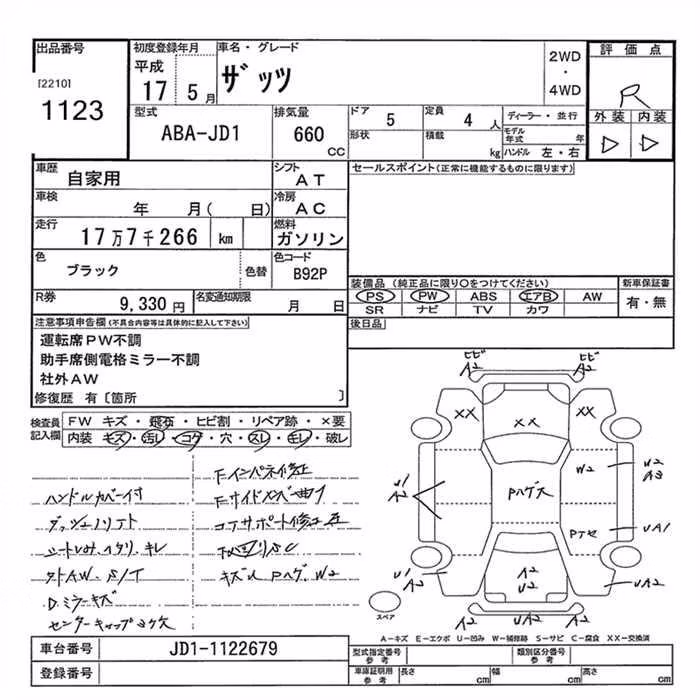 出品番号
[2210]
1123
初度登録年月
平成
17 5月
車名・グレード
ザッツ
2WD
・
4WD
評価点
R
外装 内装
D D
型式
ABA-JD1
排気量
660
CC
ドア 5
形状
定員 4 人
積載 kg
ディーラー・並行
モデル年式 年
ハンドル 左・右
車歴 自家用
シフト AT
車検 年 月( 日)
冷房 AC
走行 17万7千266 km
燃料 ガソリン
色 ブラック
色替
色コード B92P
R券 9,330円
名変通知期限 月 日
セールスポイント(正常に機能するものに限ります)
装備品 (純正品に限り○をつけてください)
PS PW ABS エアB AW
SR ナビ TV カワ
新車保証書
有・無
後日品
注意事項申告欄(不具合内容等は具体的に記入して下さい)
運転席PW不調
助手席側電格ミラー不調
社外AW
修復歴 有〔箇所 〕
検査員記入欄
FW キズ・飛石・ヒビ割・リペア跡・×要
内装 キズ・汚レ・コゲ・穴・スレ・キレ・破レ
ハンドルカバー付
シートヨゴレ、ヘタリ、キレ
タトAW、S/T
D.ミラーキズ
センターキャップヨケ欠
Fインパネ修正
Fサイドメンバー曲り
コアサポート修正歪
キズ凹 Pハゲ、W2
ヒビ
A2
ヒビ
A2
XX
XX
XX
W2
W2
A3
U1
A2
Pハゲ大
Pナセ
UA1
U1
A2
A2
U2
UA2
UA2
A2
スペア
A−キズ E−エクボ U−凹み W−補修跡 S−サビ C−腐食 XX−交換済
車台番号 JD1-1122679
登録番号
型式指定番号
参考
類別区分番号
参考
車庫証明用
参考
長さ cm
幅 cm
高さ cm